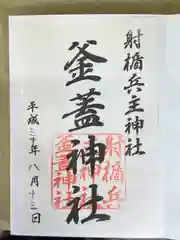 射楯兵主神社
釜蓋神社
平成三十年八月十三日
射楯兵
主神社
釜蓋神社